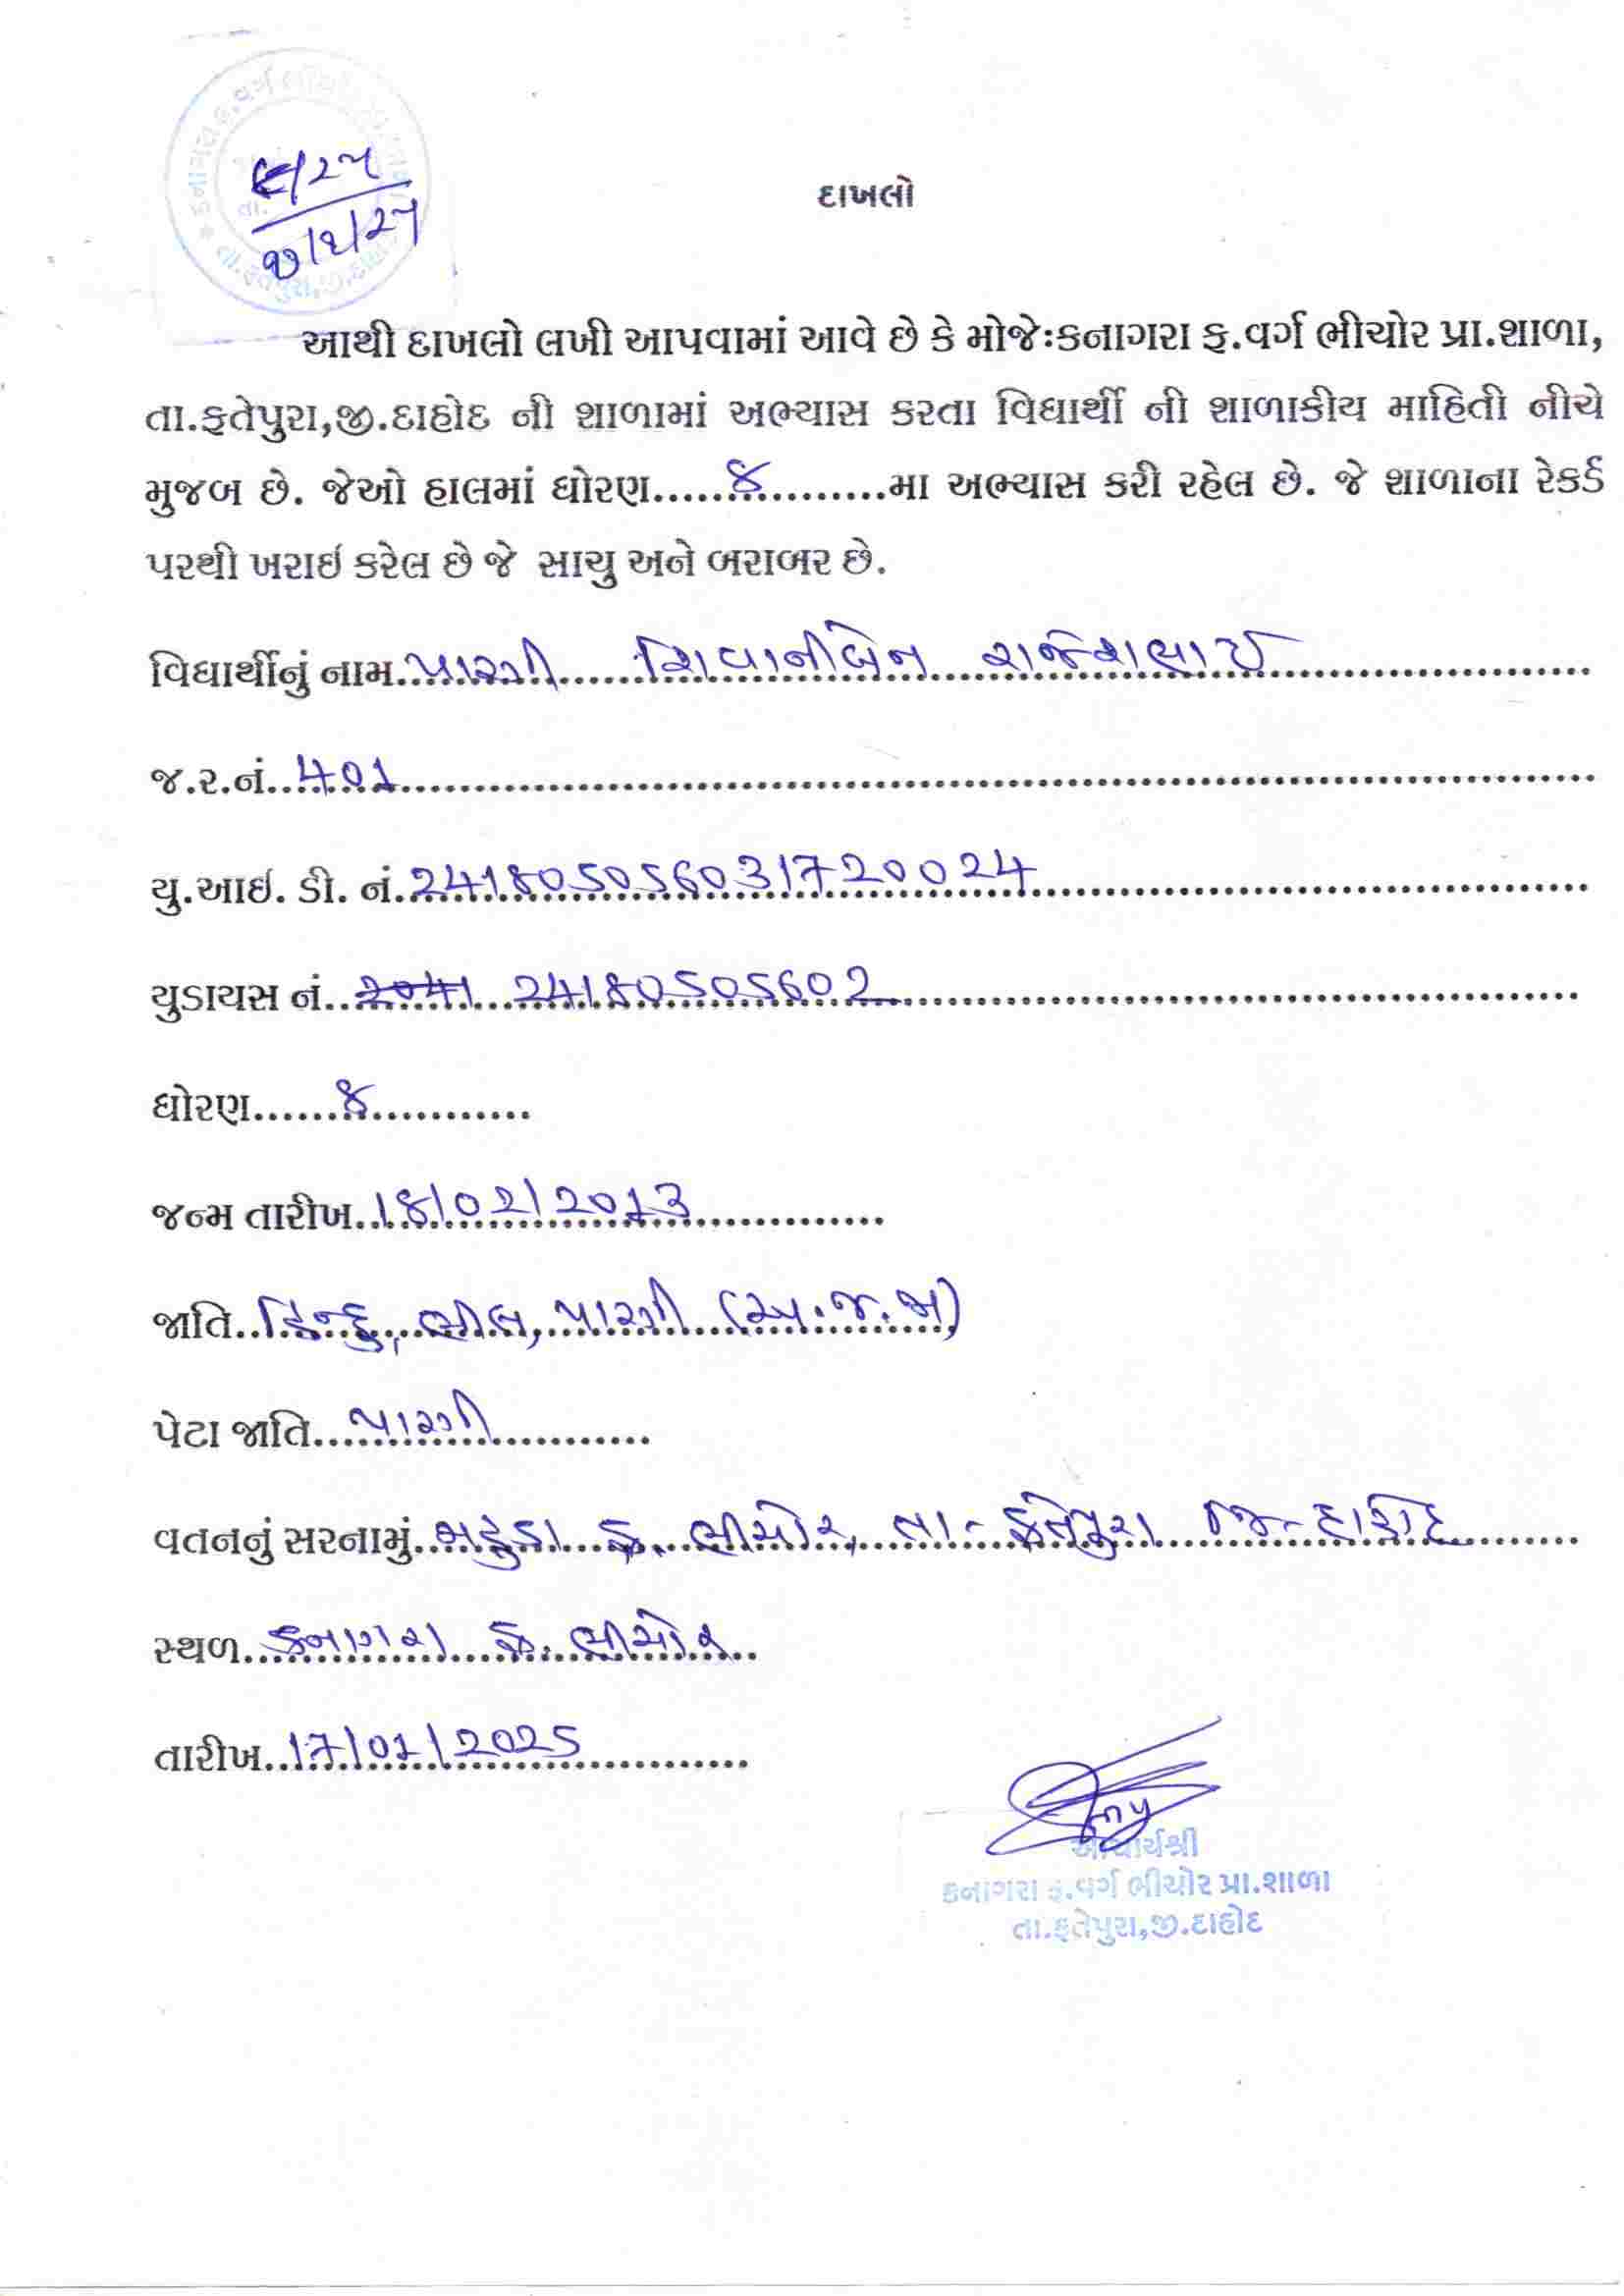 દાખલો
આથી દાખલો લખી આપવામાં આવે છે કે મોજેઃકનાગરા ફ.વર્ગ ભીચોર પ્રા.શાળા,
તા.ફતેપુરા,જી.દાહોદ ની શાળામાં અભ્યાસ કરતા વિધાર્થી ની શાળાકીય માહિતી નીચે
મુજબ છે. જેઓ હાલમાં ધોરણ......૪..........મા અભ્યાસ કરી રહેલ છે. જે શાળાના રેકર્ડ
પરથી ખરાઇ કરેલ છે જે સાચુ અને બરાબર છે.
વિધાર્થીનું નામ..પારગી શિવાનીબેન રાજેશભાઈ
જ.ર.નં..401
યુ.આઇ. ડી. નં.241805056031720024
યુડાયસ નં.. 24180505602
ધોરણ......૪............
જન્મ તારીખ..18/02/2013
જાતિ..હિન્દુ, ભીલ, પારગી (અ.જ.જા)
પેટા જાતિ...પારગી
વતનનું સરનામું. ફ. ભીચોર, તા- ફતેપુરા જિ-દાહોદ
સ્થળ..કનાગરા ફ. ભીચોર
તારીખ..17/01/2025
આચાર્યશ્રી
કનાગરા ફ.વર્ગ ભીચોર પ્રા.શાળા
તા.ફતેપુરા,જી.દાહોદ